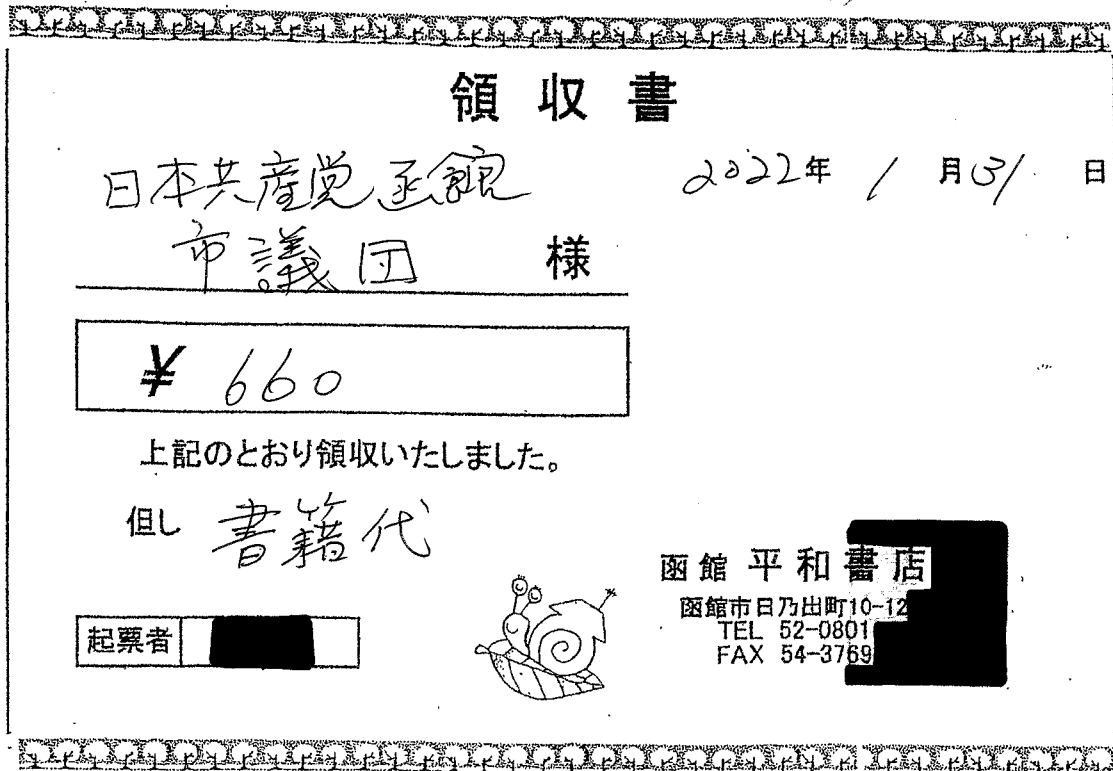 領収書
日本共産党函館
市議団 様
2022年 1月31日
¥ 660
上記のとおり領収いたしました。
但し 書籍代
函館 平和書店
函館市日乃出町10-12
TEL 52-0801
FAX 54-3769
起票者